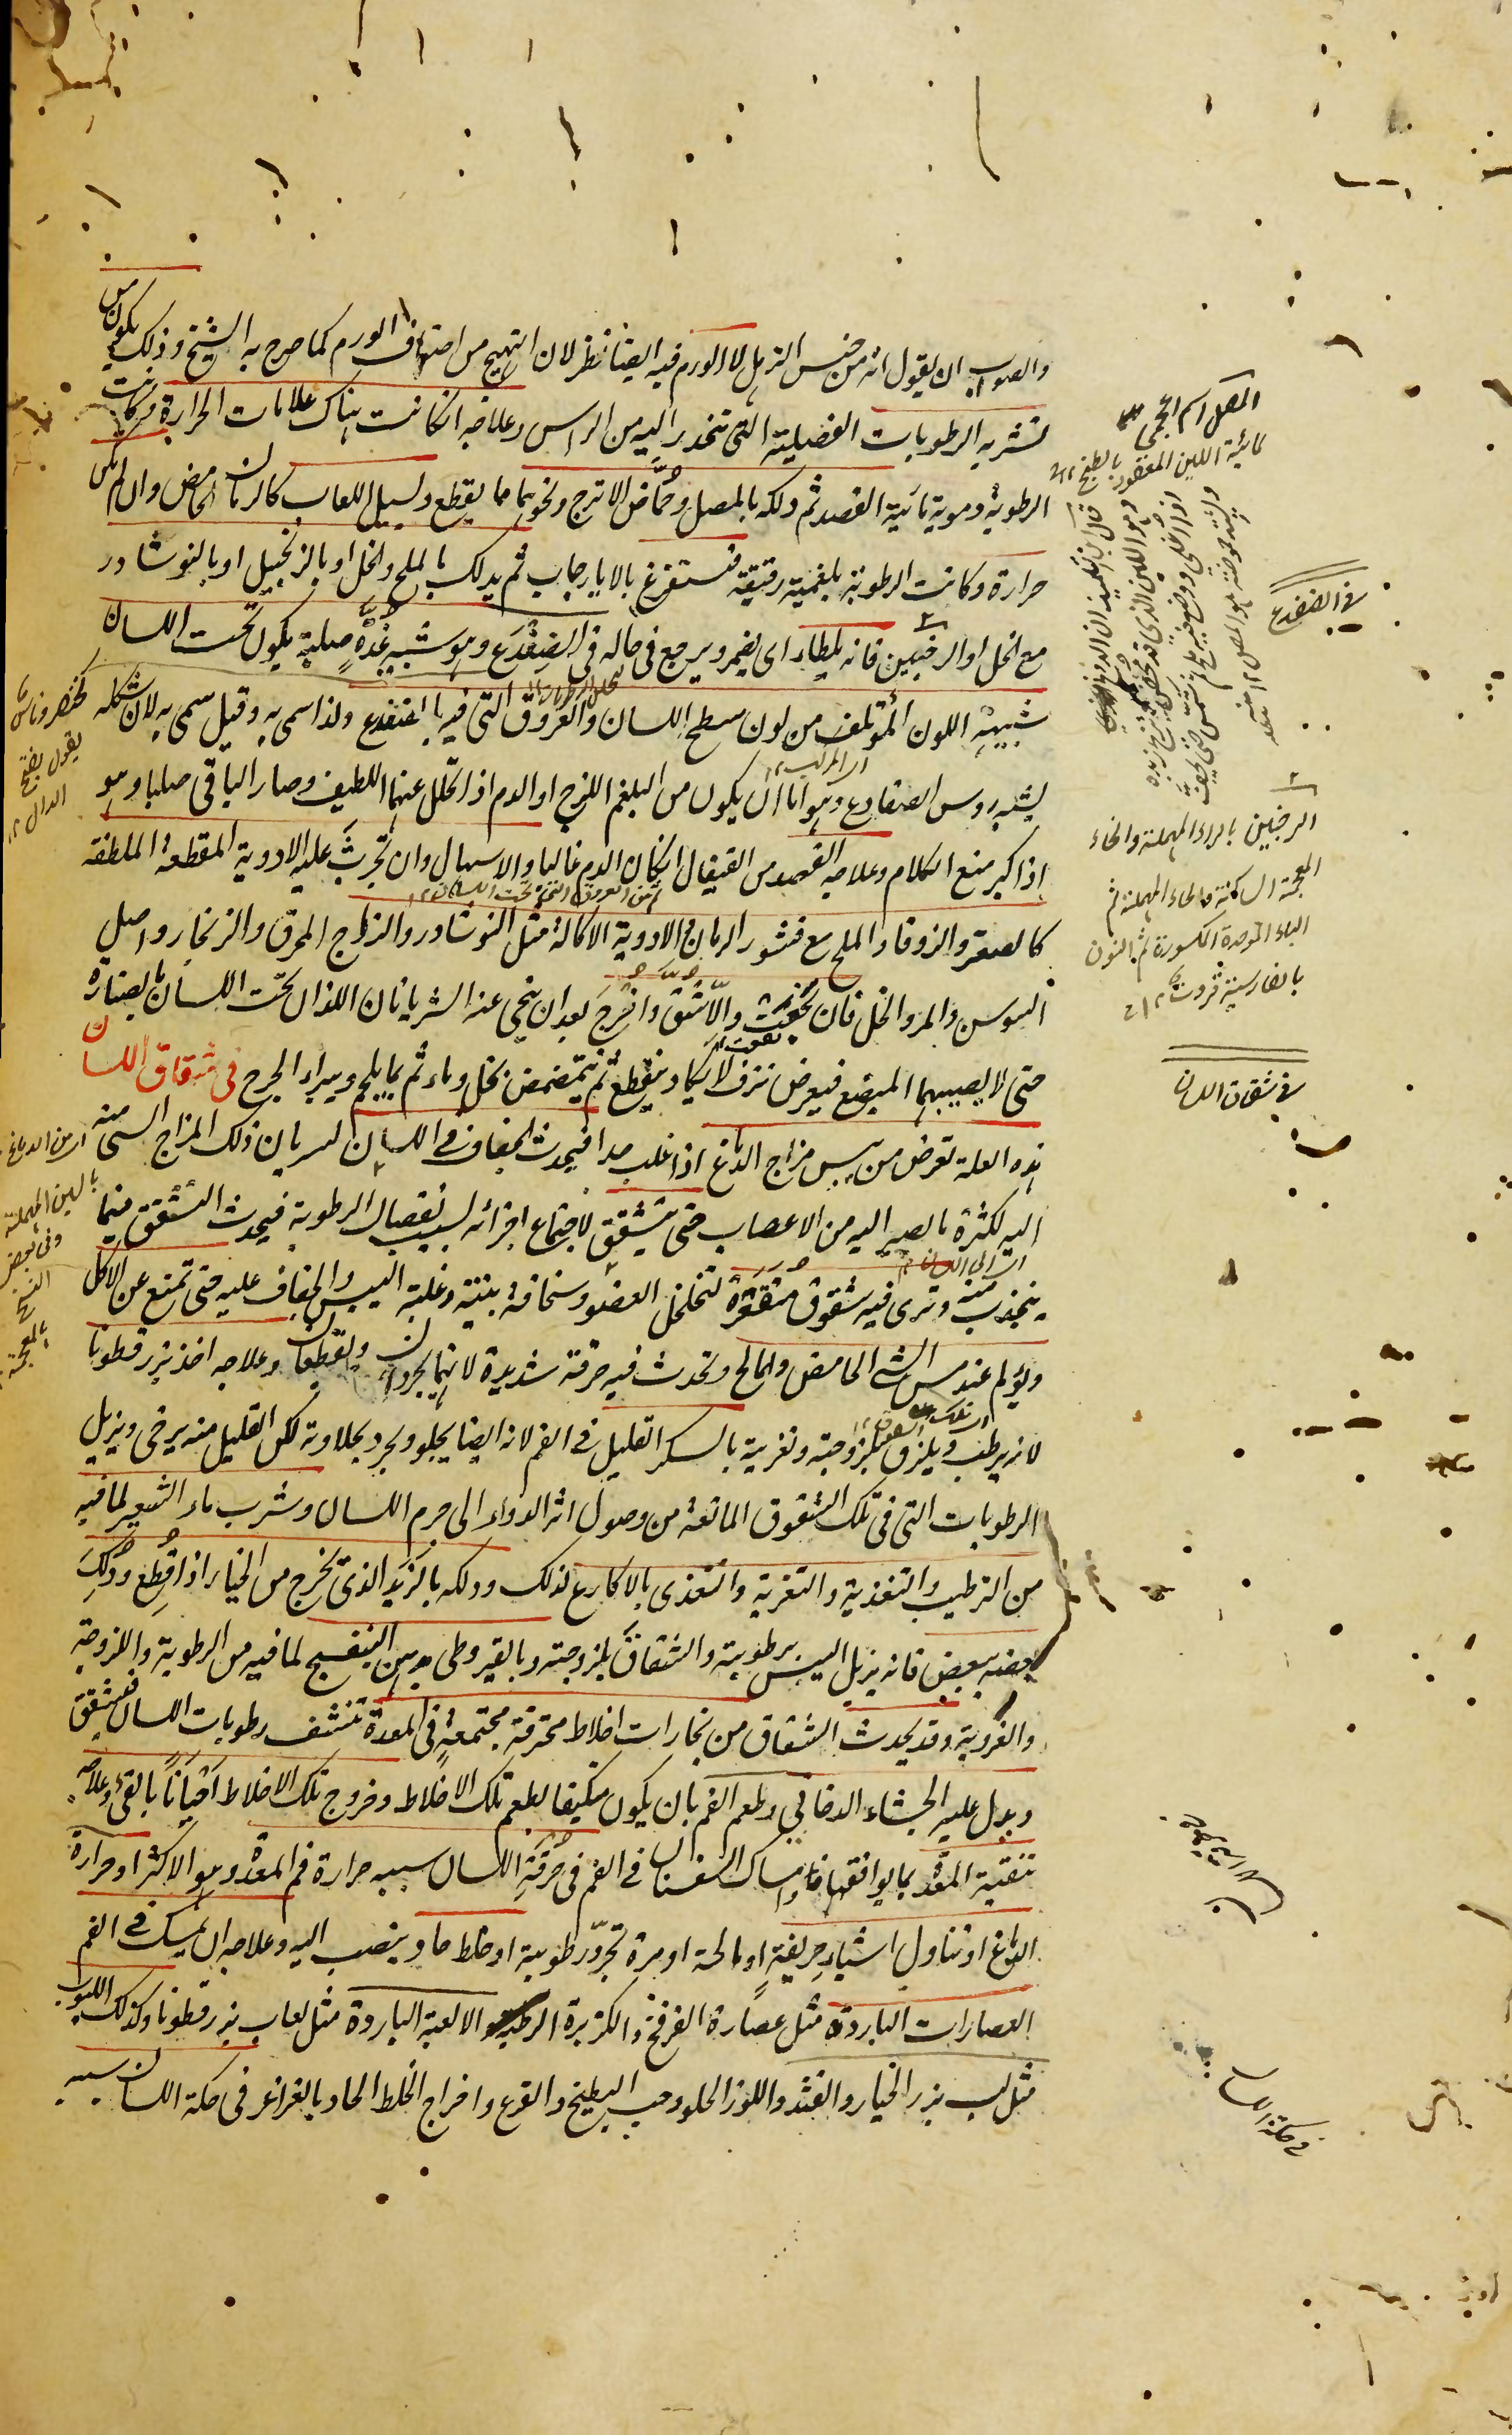 والصواب ان يقول انه من جنس الترهل لا الورم فيه ايضا نظر لان التهيج من اصناف الورم كما صرح به الشيخ وذلك يكون من
تشربه الرطوبات الفضلية التى تنحدر اليه من الراس وعلاجه انكانت هناك علامات الحرارة وكانت
الرطوبة دموية مائية الفصد ثم دلكه بالمصل وحُمّاض الاترج ونحوهما مما يقطع ويسيل اللعاب كالرمان الحامض وان لم يكن
حرارة وكانت الرطوبة بلغمية رقيقة فستفرغ بالايارجات ثم يدلك بالملح والخل او بالزنجبيل او بالنوشادر
مع الخل او الرخبين فانه يلطاء اى يضمر ويرجع فى حاله فى الضِفدَع وهو شبيه غُدّةٍ صلبة يكون تحت اللسان
شبيهة اللون المؤتلف من لون سطح اللسان والعروق التى فيه بالضفدع ولذا سمى به وقيل سمى به لان شكله
يشبه رءوس الضفادع وهو اما ان يكون من البلغم اللزج او الدم اذا تحلل عنهما اللطيف وصار الباقى صلبا وهو
اذا كبر منع الكلام وعلاجه الفصد من القيفال انكان الدم غالبا والاسهال وان تجربت عليه الادوية المقطعة الملطفة
كالصعتر والزوفا والملح مع قشور الرمان والادوية الاكالة مثل النوشادر والزاج المحرق والزنجار واصل
السوسن والمر والخل فان نجعت والّا شُقّ واُخرِجَ بعد ان ينحى عنه الشريانان اللذان تحت اللسان بالصنارة
حتى لا يصيبهما المبضع فيعرض نزف لا يكاد ينقطع ثم يتمضمض بخل وماء ثم بما يلحم ويبراء الجرح فى شقاق اللسان
هذه العلة تعرض من يبس مزاج الدماغ اذا غلب جدا فيحدث الجفاف فى اللسان لسريان ذلك المزاج السئ منه
اليه لكثرة ما يصير اليه من الاعصاب حتى يتشقق لاجتماع اجزائه بسبب نقصان الرطوبة فيحدث التشقق فيما
ينجذب منه وترى فيه شقوق مُتقعّرة لتخلخل العضو وسخافة بنيته وغلبة اليبس والجفاف عليه حتى تمنع عن الاكل
ويؤلم عند مس الشئ الحامض والمالح وتحدث فيه حرقة شديدة لانهما يجردان ويقطعان وعلاجه اخذ بزر قطونا
لانه يرطب ويلزق بلزوجته وتغريته بالسكر القليل فى الفم لانه ايضا يجلو ويجرد بحلاوته لكن القليل منه يرخى ويزيل
الرطوبات التى فى تلك الشقوق المانعة من وصول اثر الدواء الى جرم اللسان وشرب ماء الشعير لما فيه
من الترطيب والتغذية والتغرية والتغذى بالاكارع لذلك ودلكه بالزبد الذى يخرج من الخيار اذا قُطِع ودُلِكَ
بعضه ببعض فانه يزيل اليبس برطوبته والشقاق بلزوجته وبالقيروطى بدهن البنفسج لما فيه من الرطوبة واللزوجة
والغروية وقد يحدث الشقاق من بخارات اخلاط محترقة مجتمعة فى المعدة تنشف رطوبات اللسان فيتشقق
ويدل عليه الجشاء الدخانى وطعم الفم بان يكون متكيفا بطعم تلك الاخلاط وخروج تلك الاخلاط احيانًا بالقئ وعلاجه
تنقية المعدة بما يوافقها وامساك السفستان فى الفم فى حُرقَةِ اللسان سببه حرارة فم المعدة وهو الاكثر او حرارة
الدماغ او تناول اشياء حِرِيفةٍ او مالحة او مرة تجرّد رطوبته او خلط حاد ينصب اليه وعلاجه ان يمسك فى الفم
العصارات الباردة مثل عصارة الفرفخ والكزبرة الرطبة والالعبة الباردة مثل لعاب بزر قطونا وكذلك اللبوب
مثل لب بزر الخيار والقثد واللوز الحلو وحب البطيخ والقرع واخراج الخلط الحاد بالغراغر فى حكة اللسان سببه
المصل اسم اعجمى
لمائية اللبن المعقود بالطبخ ١٢
فى الضفدع
الرخبين بالراء المهملة والخاء
المعجمة الساكنة
الباء الموحدة المكسورة ثم النون
بالفارسية قروت ١٢
فى شقاق اللسان
فى حكة اللسان
يقول بفتح
الدال ١٢
اى من الدماغ
بالسين المهملة
وفى بعض
النسخ
بالمعجمة